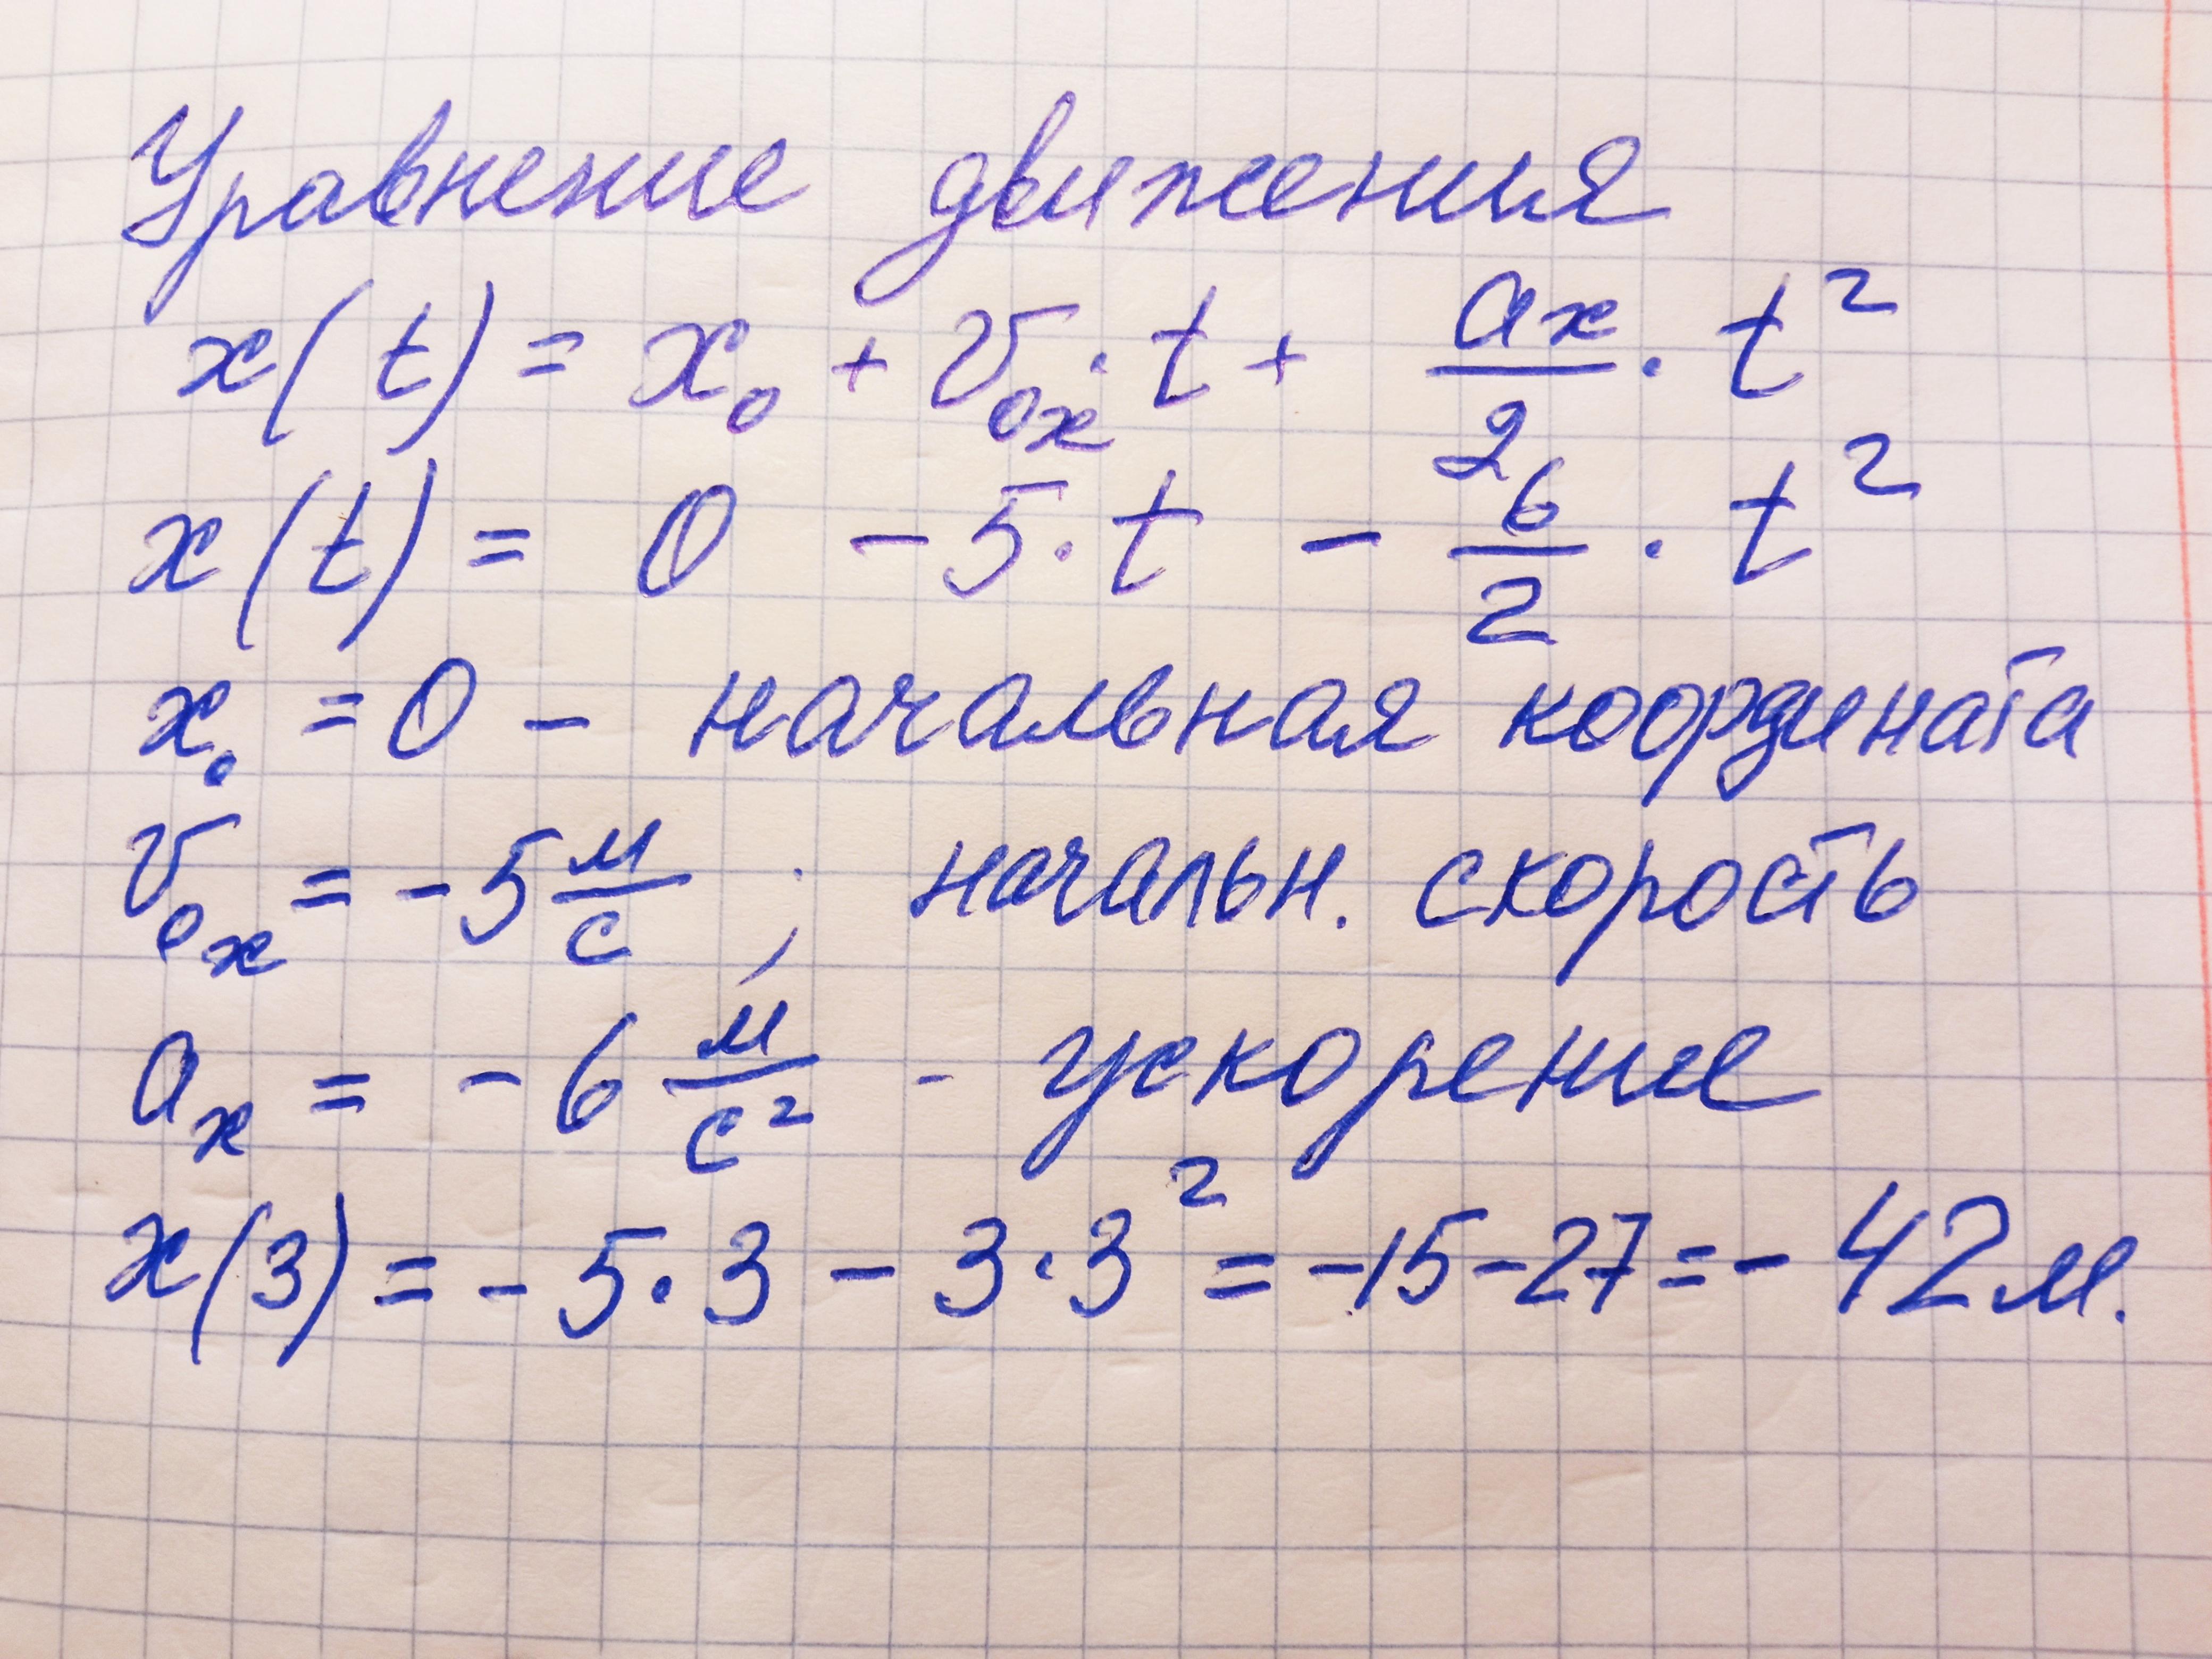 Уравнение движения
x(t) = x₀ + v₀ₓ · t + aₓ/2 · t²
x(t) = 0 - 5 · t - 6/2 · t²
x₀ = 0 - начальная координата
v₀ₓ = -5 м/с ; начальн. скорость
aₓ = - 6 м/с² - ускорение
x(3) = - 5 · 3 - 3 · 3² = -15-27 = - 42 м.